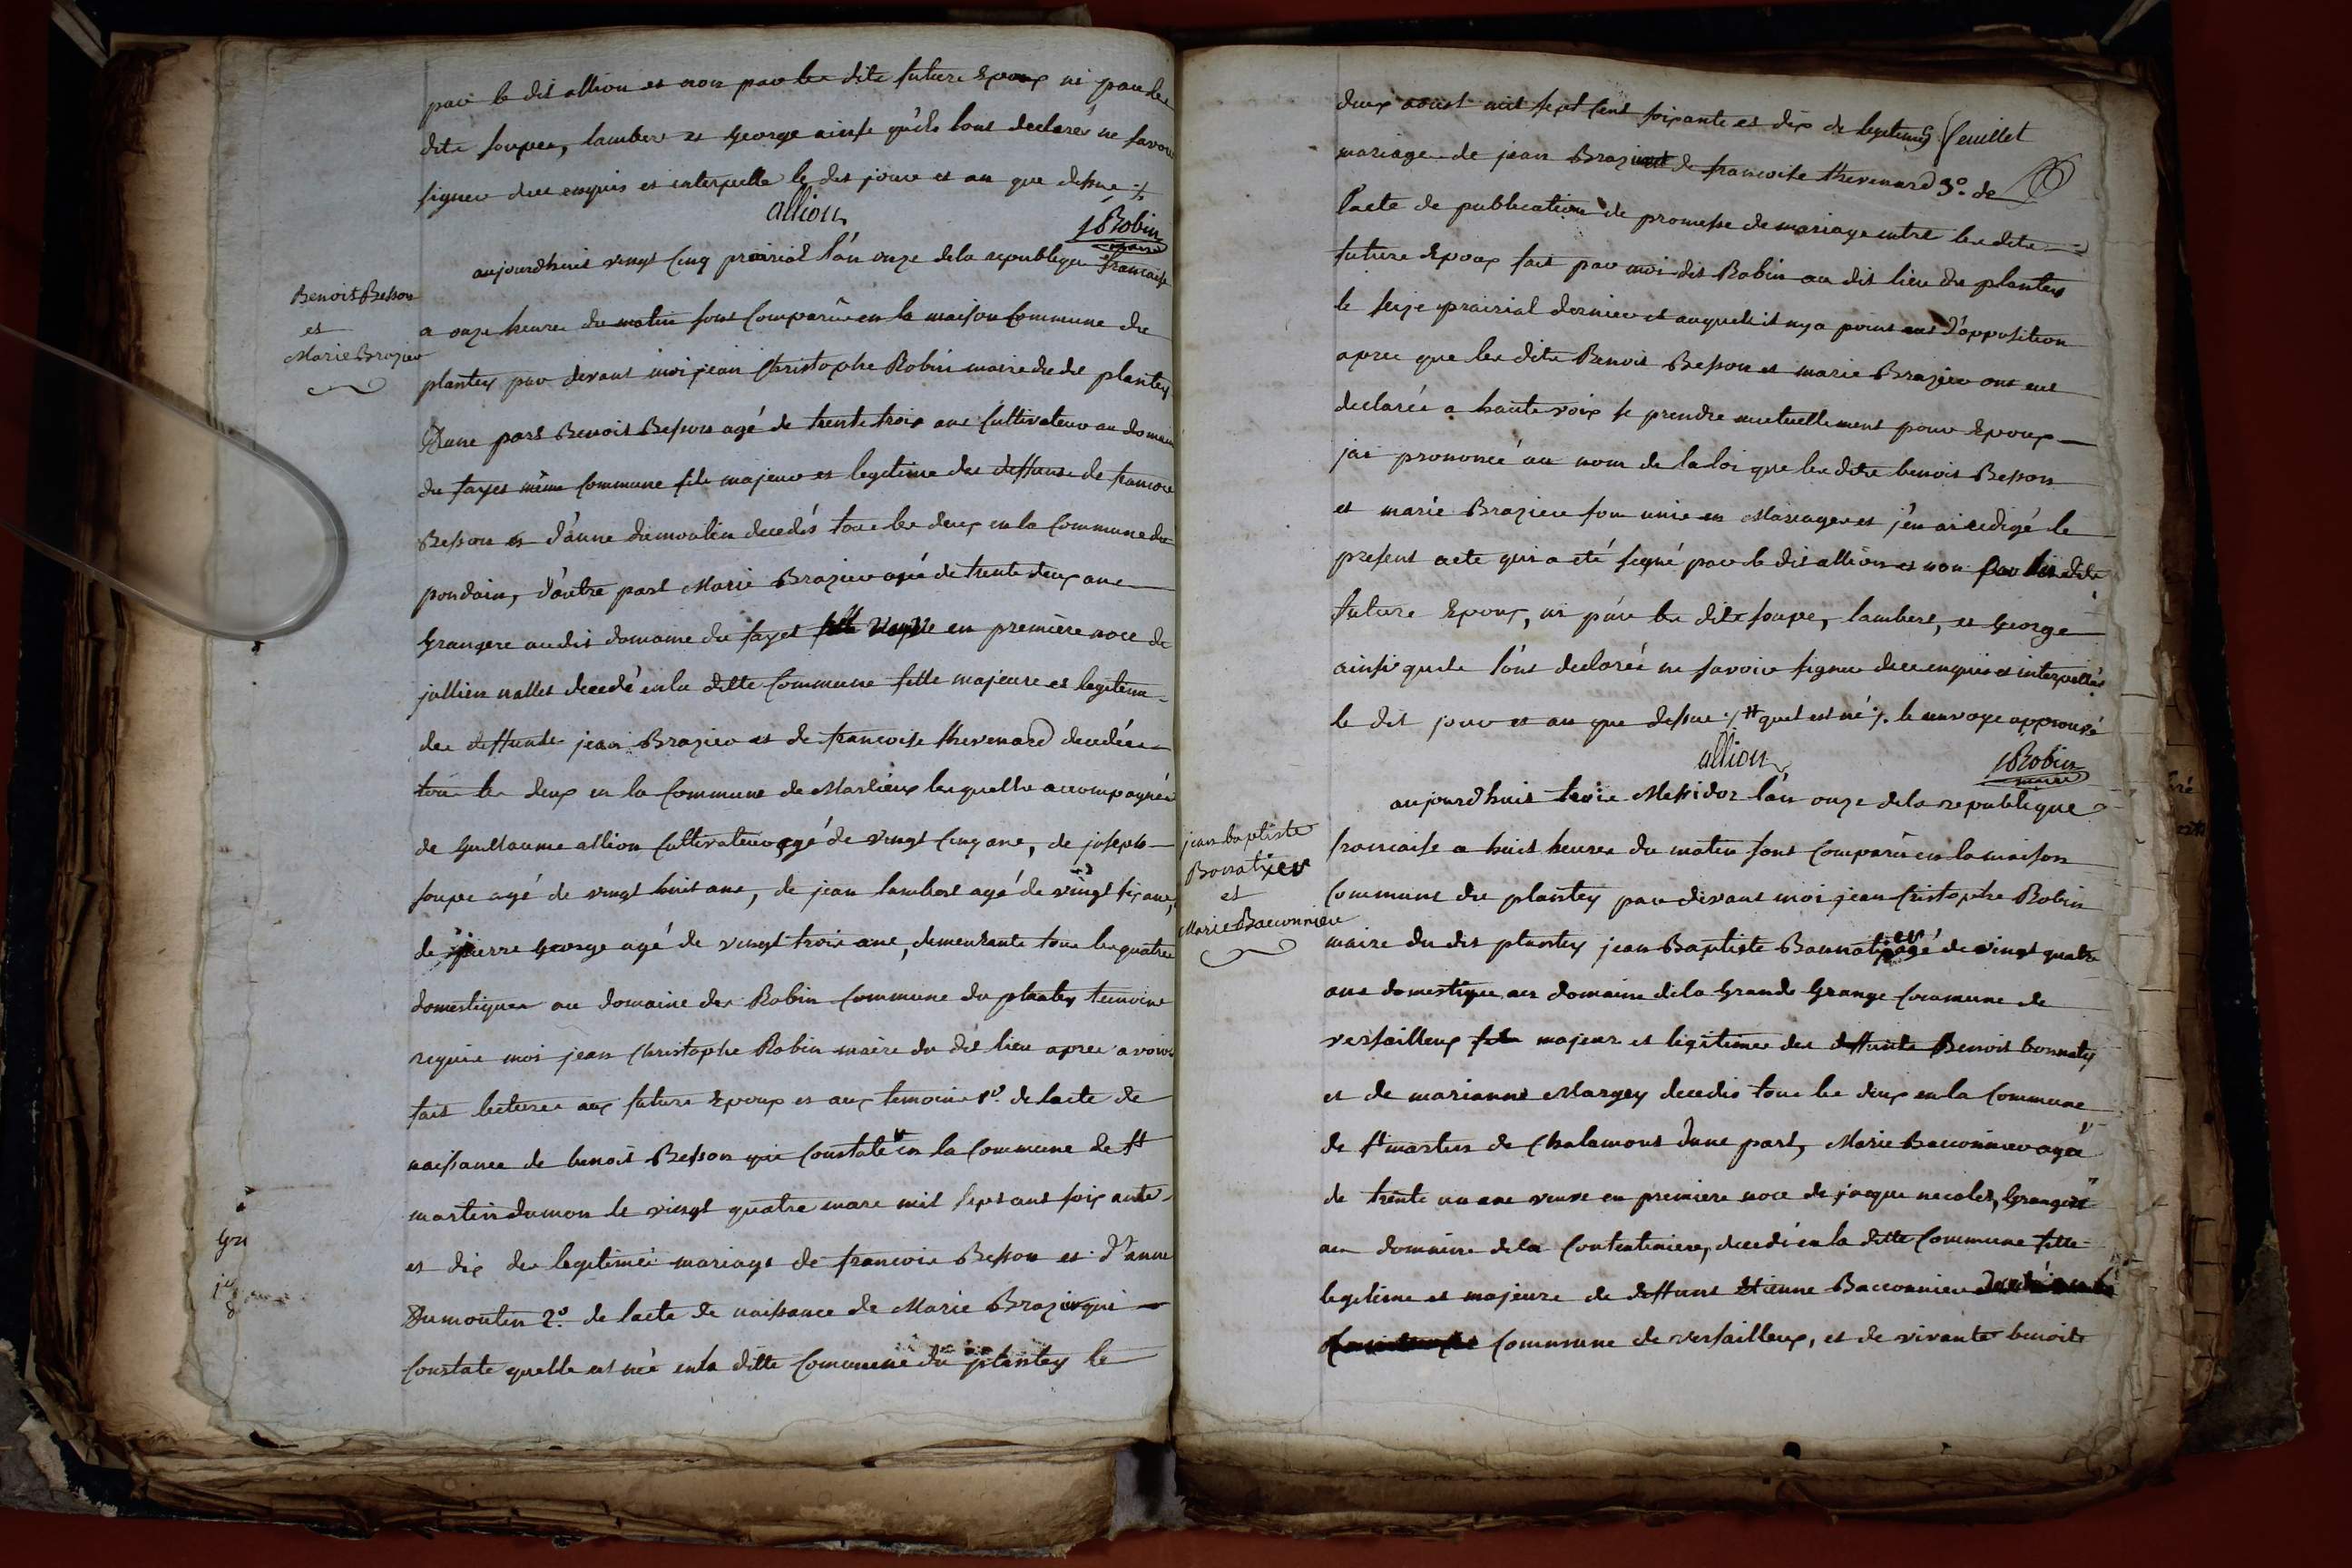 par le dit allion et non par les dits futurs Epoux ni par les
dits soupes, lambert et George ainsi qu'ils l'ont declarés ne savoir
signer dece enquis et interpellé le dit jour et an que dessus ./.
allion
JCRobin
maire
Benoit Besson
et
Marie Brazier
aujourdhuis vingt cinq prairial l'an onze dela republique francaise
a onze heures du matin sont Comparûs en la maison Commune du
plantey par devant moi jean Christophe Robin maire du dit plantey
D'une part Benoit Besson agé de trente trois ans Cultivateur au domaine
du fayet même Commune fils majeur et legitime des deffunts de francois
Besson et d'anne dumoulin decedés tous les deux en la Commune du
poudain, d'autre part Marie Brazier agée de trente deux ans
Grangere audit domaine du fayet veuve en première noce de
jullien nallet decedé en la ditte Commune fille majeure et legitime
des deffunts jean Brazier et de francoise thevenard decedées
tous les deux en la Commune de Marlieux lesquelles accompagnés
de Guillaume allion Cultivateur agé de vingt cinq ans, de joseph
soupe agé de vingt huit ans, de jean lambert agé de vingt six ans,
de pierre George agé de vingt trois ans, demeurants tous les quatre
domestiques au domaine des Robin Commune du plantey temoins
requis moi jean Christophe Robin maire du dit lieu apres avoir
fait lecture aux futurs Epoux et aux temoins 1o. de lacte de
naissance de benoit Besson qui Constate # en la Commune de St
martin dumon le vingt quatre mars mil sept cent soixante
et dix du legitimée mariage de francois Besson et d'anne
Dumoulin 2o. de lacte de naissance de Marie Brazier qui
Constate quelle est née en la ditte Commune du plantey le
deux aoust mil sept cent soixante et dix de legitimes feuillet
mariage de jean Brazier et de francoise thevenard 3o. de
l'acte de publication de promesse de mariage entre les dits
futurs Epoux fait par moi dit Robin au dit lieu du plantey
le seize prairial dernier et auquels it ny a point eut d'opposition
apres que les dits Benoit Besson et marie Brazier ont eut
declarée a haute voix se prendre mutuellement pour Epoux
jai prononcé au nom de la loi que les dits benoit Besson
et marie Brazier son unis en Mariage et j'en ai redigé le
present acte qui a eté signé par le dit allion et non par les dits
futurs Epoux, ni par les dits soupe, lambert, et George
ainsi quils l'ont declarée ne savoir signer dece enquis et interpellés
le dit jour et an que dessus ./. # quel est né ./. le renvoye approuvé
allion
JCRobin
maire
jean baptiste
Bonnatier
et
Marie Baconniere
aujourdhuis trois Messidor l'an onze dela republique
francaise a huit heures du matin sont Comparû en la maison
Commune du plantey par devant moi jean Cristophe Robin
maire du dit plantey jean Baptiste Bonnatier agé de vingt quatre
ans domestique au domaine dela Grande Grange Commune de
versailleux fils majeur et légitime des deffunts Benoit bonnaty
et de marianne Margey decedés tous les deux en la Commune
de St martin de Chalamont dune part, Marie Baconnier agée
de trente un ans veuve en premiere noce de jacque nicolet, Grangere
au domaine dela Contentiniere, decedé en la ditte Commune fille
legitime et majeure de deffunt Etienne Bacconnier
Commune de versailleux, et de vivante benoite